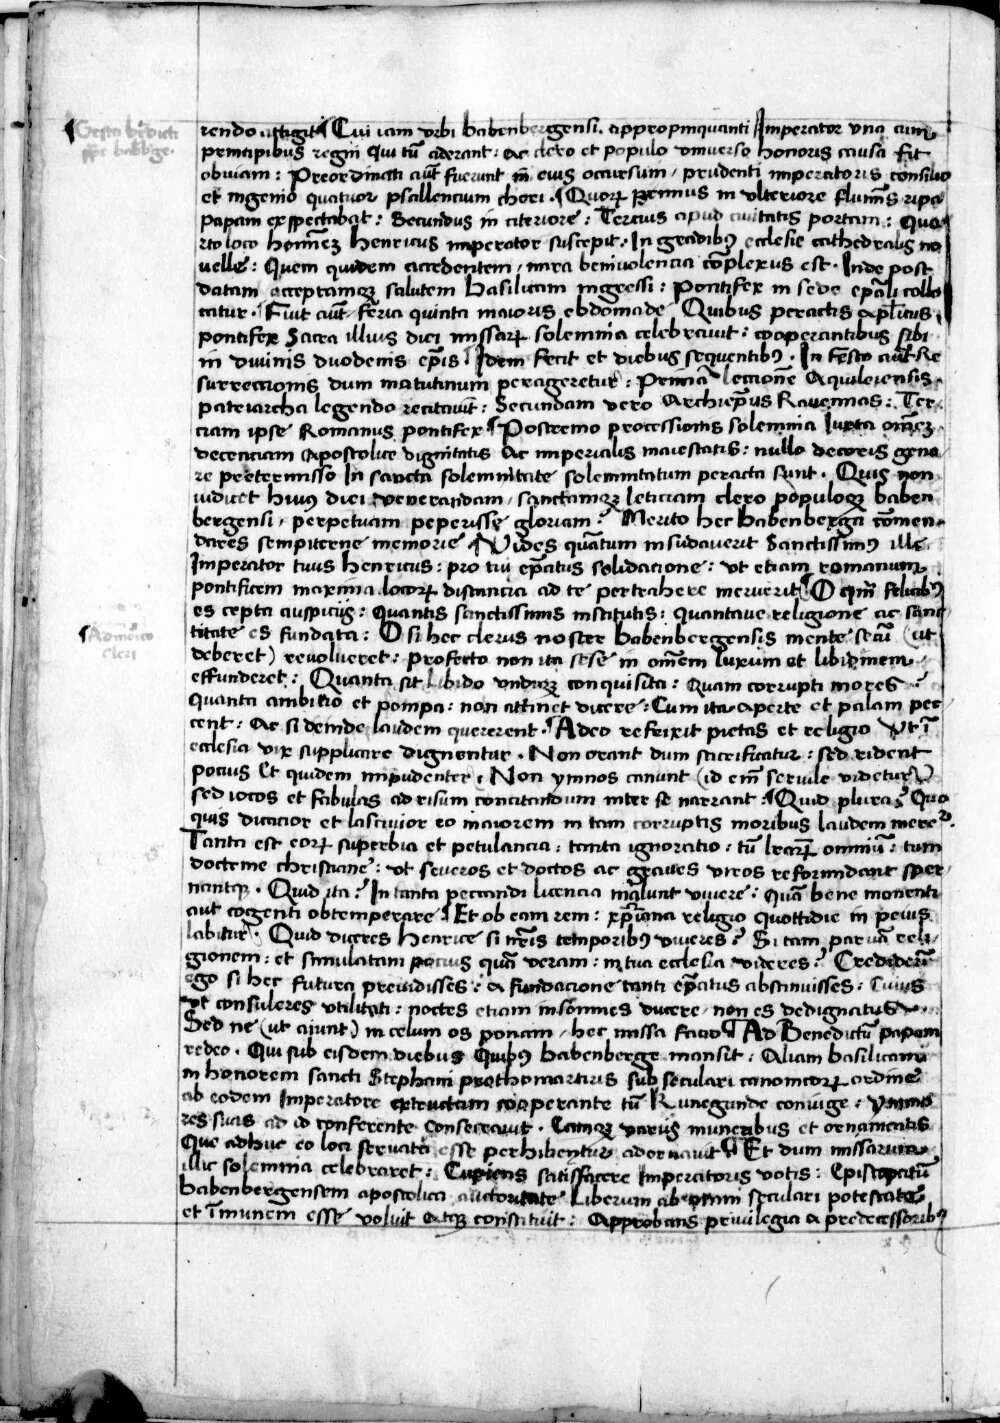 Gesta b̄n̄dicti
pp̄e bab̄b̄ge.
rendo attigit ¶ Cui iam vrbi babenbergensi. appropinquanti Imperator vna cum
principibus regni qui tū aderant: ac clero et populo vniuerso honoris causa fit
obuiam: Preordinati aūt fuerunt in eius occursum / prudenti imperatoris consilio
et ingenio quatuor psallencium chori. ¶ Quorꝝ primus in vlteriore fluminis ripa
papam exspectabat: Secundus in citeriore: Tercius apud ciuitatis portam: Qua-
rto loco hominēꝫ henricus imperator suscepit. In gradibꝰ ecclesie cathedralis no
uelle: Quem quidem accedentem / mira beniuolencia cōplexus est. Inde post
datam acceptamqꝫ salutem basilicam ingressi: pontifex in sede ep̄ali collo
catur. Fuit aūt feria quinta maioris ebdomade Quibus peractis ap̄licus
pontifex Sacra illius diei missarꝝ solemnia celebrauit: cooperantibus sibi
in diuinis duodenis ep̄is. Idem fecit et diebus sequentibꝰ. In festo aūt Re
surrectionis dum matutinum perageretur: Primā lectionē Aquileiensis.
patriarcha legendo recitauit: Secundam vero Archiep̄us Rauennas: Ter-
ciam ipse Romanus pontifex ¶ Postremo processionis solemnia Iuxta om̄eꝫ
decenciam apostolice dignitatis ac imperialis maiestatis: nullo decoris gene
re pretermisso In sancta solemnitate solemnitatum peracta sunt. Quis non
iudicet huiꝰ diei venerandam / sanctamqꝫ leticiam clero populoqꝫ baben
bergensi / perpetuam peperisse gloriam? Merito hec babenberga cōmen-
dares sempiterne memorie ¶ Vides quātum insudauerit Sanctissimꝰ ille
Imperator tuus henricus: pro tui ep̄atus solidacione: vt etiam romanum
pontificem maxima locorꝝ distancia ad te pertrahere meruerit ¶ O qm̄ felicibꝰ
es cepta auspicijs: quantis sanctissimis institutis: quantaue religione ac sanc
titate es fundata: O si hec clerus noster babenbergensis mente secū (ut
deberet) reuolueret: profecto non ita sese in om̄em luxum et libidinem
effunderet: Quanta sit libido vndiqꝫ conquisita: Quam corrupti mores
¶ Admōicio
cleri
quanta ambitio et pompa: non attinet dicere: Cum ita aperte et palam pec
cent: Ac si deinde laudem quererent. ¶ Adeo refrixit pietas et religio Vt ī
ecclesia vix supplicare dignentur. Non orant dum sacrificatur: sed rident
pocius Et quidem impudenter. Non ymnos canunt (id em̄ seruile videtur)
sed iocos et fabulas ad risum concitandum inter se narrant: ¶ Quid plura? Quo
quis dicacior et lasciuior eo maiorem in tam corruptis moribus laudem mere
Tanta est eorꝝ superbia et petulancia: tanta ignoratio: tū lr̄arꝝ omniū: tum
doctrine christiane: vt seueros et doctos ac graues viros reformidant sper
nantqꝫ. Quid ita? In tanta peccandi licencia malunt viuere: quā bene monenti
aut cogenti obtemperare ¶ Et ob eam rem: xp̄iana religio quottidie in peius
labitur. Quid diceres Henrice si nr̄is temporibꝰ viueres? Si tam paruā reli-
gionem: et simulatam pocius quā veram: in tua ecclesia videres? Crediderī
ego si hec futura preuidisses: a fundacione tanti ep̄atus abstinuisses: Cuius
vt consuleres vtilitati: noctes etiam insōmnes ducere / non es dedignatus
Sed ne (ut aiunt) in celum os ponam / hec missa facio ¶ Ad Benedictū papam
redeo. Qui sub eisdem diebus Quibꝰ babenberge mansit: Aliam basilicam
in honorem sancti Stephani prothomartiris sub seculari canonicorꝝ ordine
ab eodem Imperatore extructam cooperante tū Kunegunde coniuge:
res suas ad id conferente Consecrauit. Eamqꝫ varijs muneribus et ornamentis
Que adhuc eo loci seruata esse perhibentur adornauit ¶ Et dum missarum
illic solemnia celebraret: Cupiens satisfacere Imperatoris votis: Episcopatū
babenbergensem apostolica auctoritate Liberum ab omni seculari potestate
et īmunem esse voluit atqꝫ constituit: Approbans priuilegia a predecessoribꝰ